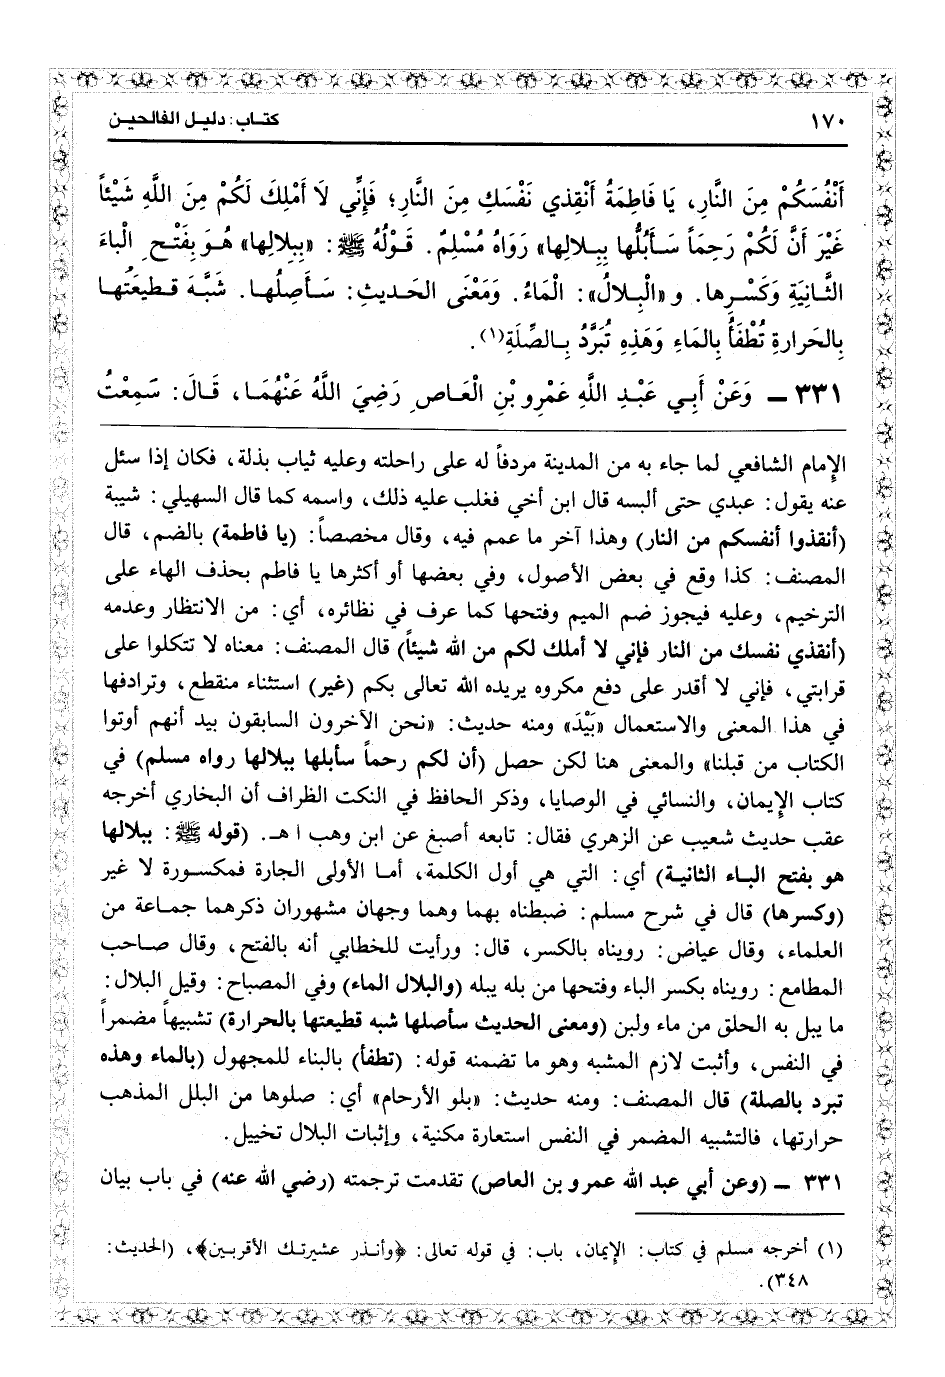 ١٧٠ كتاب: دليل الفالحين
أَنْفُسَكُمْ مِنَ النَّارِ، يَا فَاطِمَةُ أَنْقِذي نَفْسَكِ مِنَ النَّارِ؛ فَإِنِّي لَا أَمْلِكَ لَكُمْ مِنَ اللَّهِ شَيْئاً
غَيْرَ أَنَّ لَكُمْ رَحِمَاً سَأَبُلُّها بِبِلالِها» رَوَاهُ مُسْلِمٌ. قَوْلُهُ ﷺ: «بِبلالِها» هُوَ بِفَتْحِ الْباءَ
الثَّانِيَةِ وَكَسْرِها. و«الْبِلالُ»: الْمَاءُ. وَمَعْنَى الحَديثِ: سَأَصِلُها. شَبَّهَ قطيعَتُها
بِالحَرارةِ تُطْفَأُ بِالمَاءِ وَهَذِهِ تُبَرَّدُ بِالصِّلَةِ(١).
٣٣١ ــ وَعَنْ أَبِي عَبْدِ اللَّهِ عَمْرِو بْنِ الْعَاصِ رَضِيَ اللَّهُ عَنْهُمَا، قَالَ: سَمِعْتُ
الإِمام الشافعي لما جاء به من المدينة مردفاً له على راحلته وعليه ثياب بذلة، فكان إذا سئل
عنه يقول: عبدي حتى ألبسه قال ابن أخي فغلب عليه ذلك، واسمه كما قال السهيلي: شيبة
(أنقذوا أنفسكم من النار) وهذا آخر ما عمم فيه، وقال مخصصاً: (يا فاطمة) بالضم، قال
المصنف: كذا وقع في بعض الأصول، وفي بعضها أو أكثرها يا فاطم بحذف الهاء على
الترخيم، وعليه فيجوز ضم الميم وفتحها كما عرف في نظائره، أي: من الانتظار وعدمه
(أنقذي نفسك من النار فإني لا أملك لكم من الله شيئاً) قال المصنف: معناه لا تتكلوا على
قرابتي، فإني لا أقدر على دفع مكروه يريده الله تعالى بكم (غير) استثناء منقطع، وترادفها
في هذا المعنى والاستعمال «بَيْدَ» ومنه حديث: «نحن الآخرون السابقون بيد أنهم أوتوا
الكتاب من قبلنا» والمعنى هنا لكن حصل (أن لكم رحماً سأبلها ببلالها رواه مسلم) في
كتاب الإِيمان، والنسائي في الوصايا، وذكر الحافظ في النكت الظراف أن البخاري أخرجه
عقب حديث شعيب عن الزهري فقال: تابعه أصبغ عن ابن وهب اهـ. (قوله ﷺ: ببلالها
هو بفتح الباء الثانية) أي: التي هي أول الكلمة، أما الأولى الجارة فمكسورة لا غير
(وكسرها) قال في شرح مسلم: ضبطناه بهما وهما وجهان مشهوران ذكرهما جماعة من
العلماء، وقال عياض: رويناه بالكسر، قال: ورأيت للخطابي أنه بالفتح، وقال صاحب
المطامع: رويناه بكسر الباء وفتحها من بله يبله (والبلال الماء) وفي المصباح: وقيل البلال:
ما يبل به الحلق من ماء ولبن (ومعنى الحديث سأصلها شبه قطيعتها بالحرارة) تشبيهاً مضمراً
في النفس، وأثبت لازم المشبه وهو ما تضمنه قوله: (تطفأ) بالبناء للمجهول (بالماء وهذه
تبرد بالصلة) قال المصنف: ومنه حديث: «بلو الأرحام» أي: صلوها من البلل المذهب
حرارتها، فالتشبيه المضمر في النفس استعارة مكنية، وإثبات البلال تخييل.
٣٣١ ــ (وعن أبي عبد الله عمرو بن العاص) تقدمت ترجمته (رضي الله عنه) في باب بيان
(١) أخرجه مسلم في كتاب: الإِيمان، باب: في قوله تعالى: ﴿وأنذر عشيرتك الأقربين﴾، (الحديث:
٣٤٨).